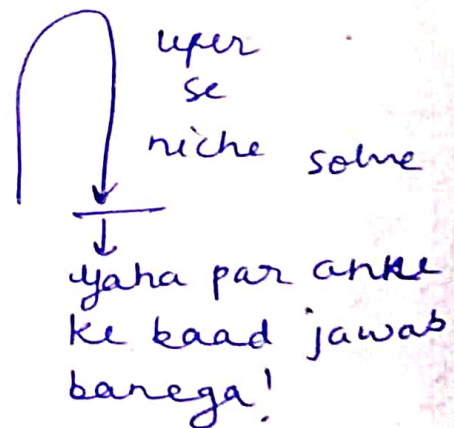 uper
se
niche solve
yaha par anke
ke baad jawab
banega!